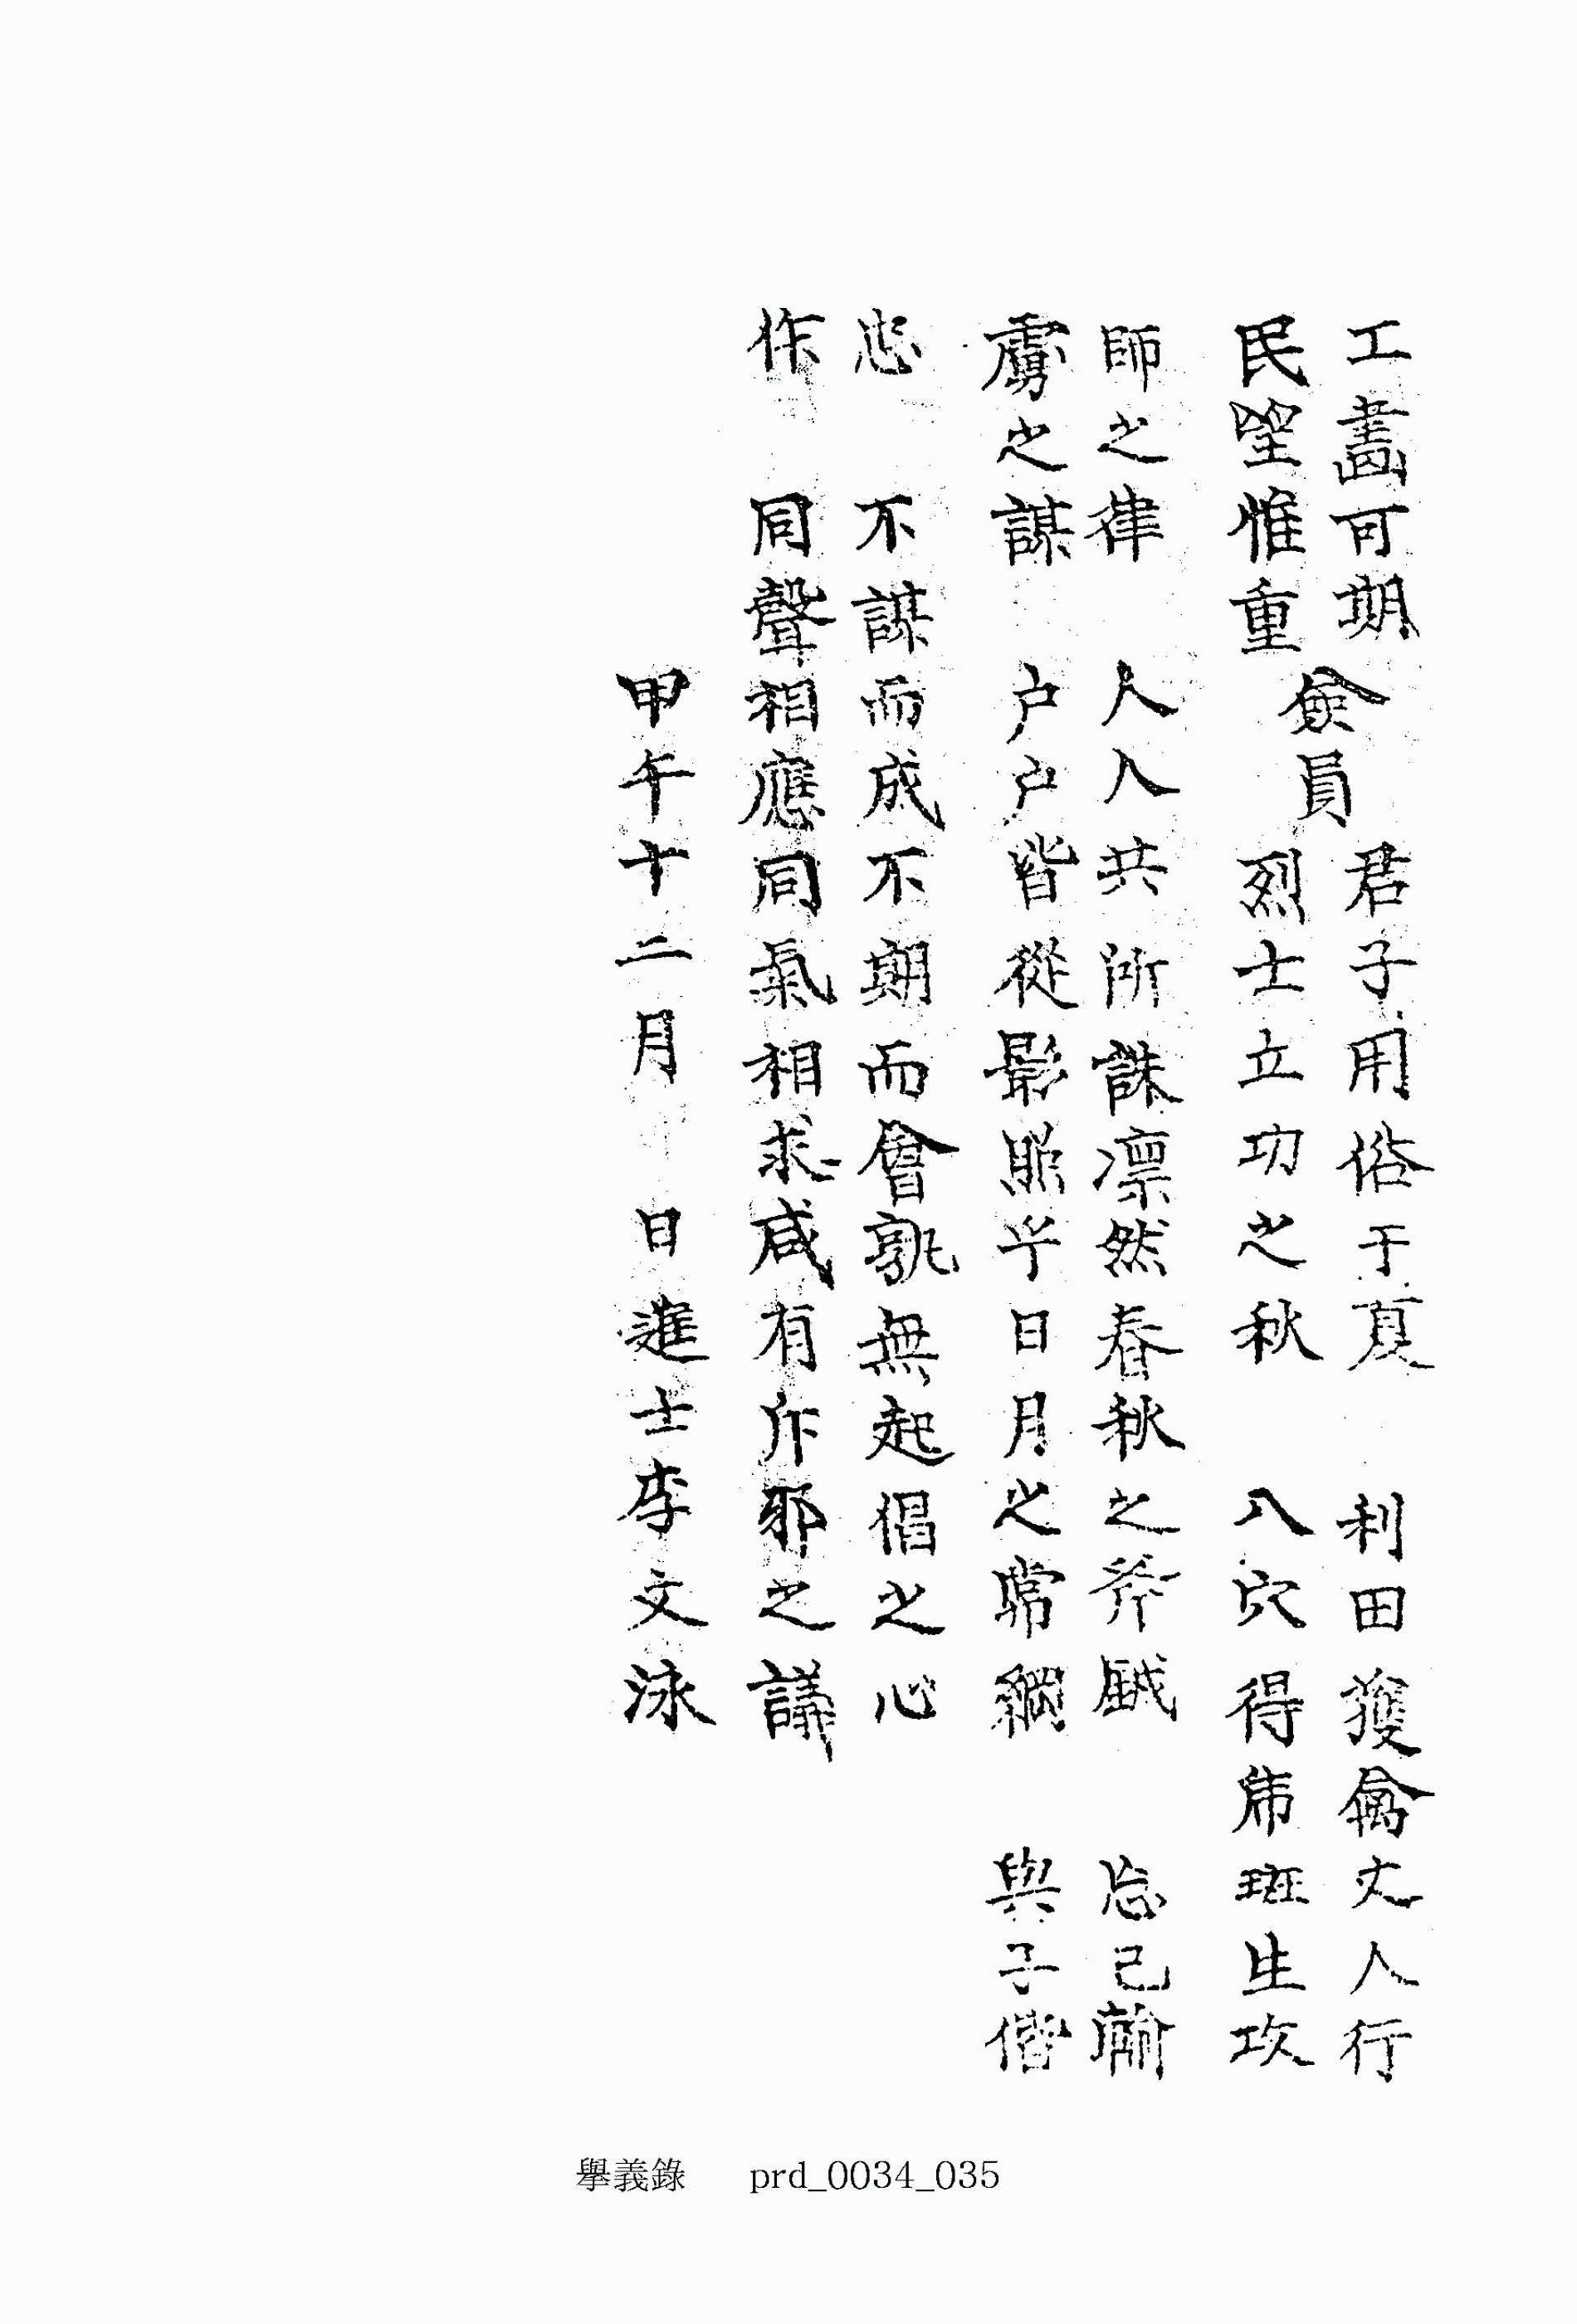 工畵可期
民望惟重
僉員
君子用俗于夏　利田獲禽丈人行
烈士立功之秋　八穴得 班生攻
師之律　人人共所誅凛然春秋之斧鉞　忘己
虜之謀　户户皆從影照乎日月之常綱　與子偕
忠　不謀而成不期而會孰無起倡之心
作　同聲相應同氣相求咸有斥邪之議
甲午十二月　日進士李文泳
擧義錄　prd_0034_035